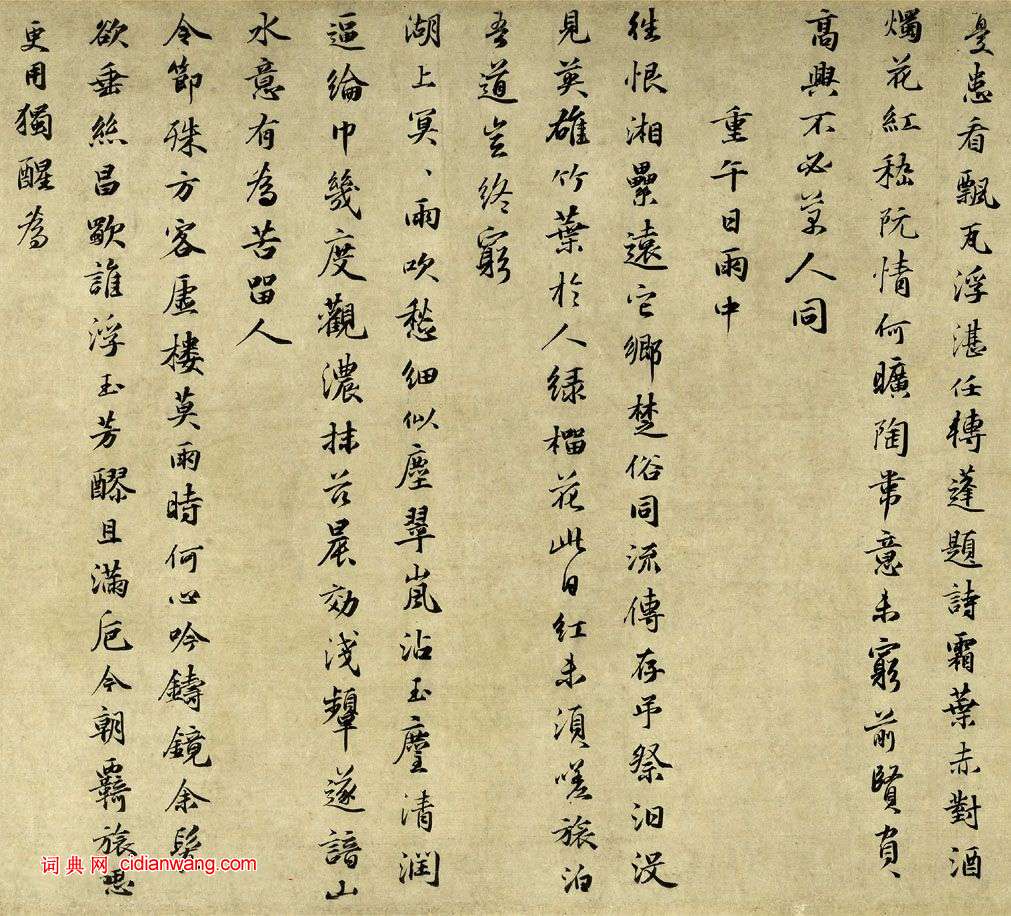 憂患看飄瓦浮湛任轉蓬題詩霜葉赤對酒
燭花紅嵇阮情何曠陶韋意未窮前賢負
高興不必人同
重午日雨中
往恨湘纍遠它鄉楚俗同流傳存弔祭汨沒
見英雄竹葉於人綠榴花此日紅未須嗟旅泊
吾道豈終窮
湖上冥、雨吹愁細似塵翠嵐沾玉麈清潤
逼綸巾幾度觀濃抹茲晨効淺顰遂諳山
水意有為苦留人
令節殊方客虛樓莫雨時何心吟鑄鏡余鬢
欲垂絲昌歜誰浮玉芳醪且滿卮今朝羇旅思
更用獨醒為
词典网 cidianwang.com